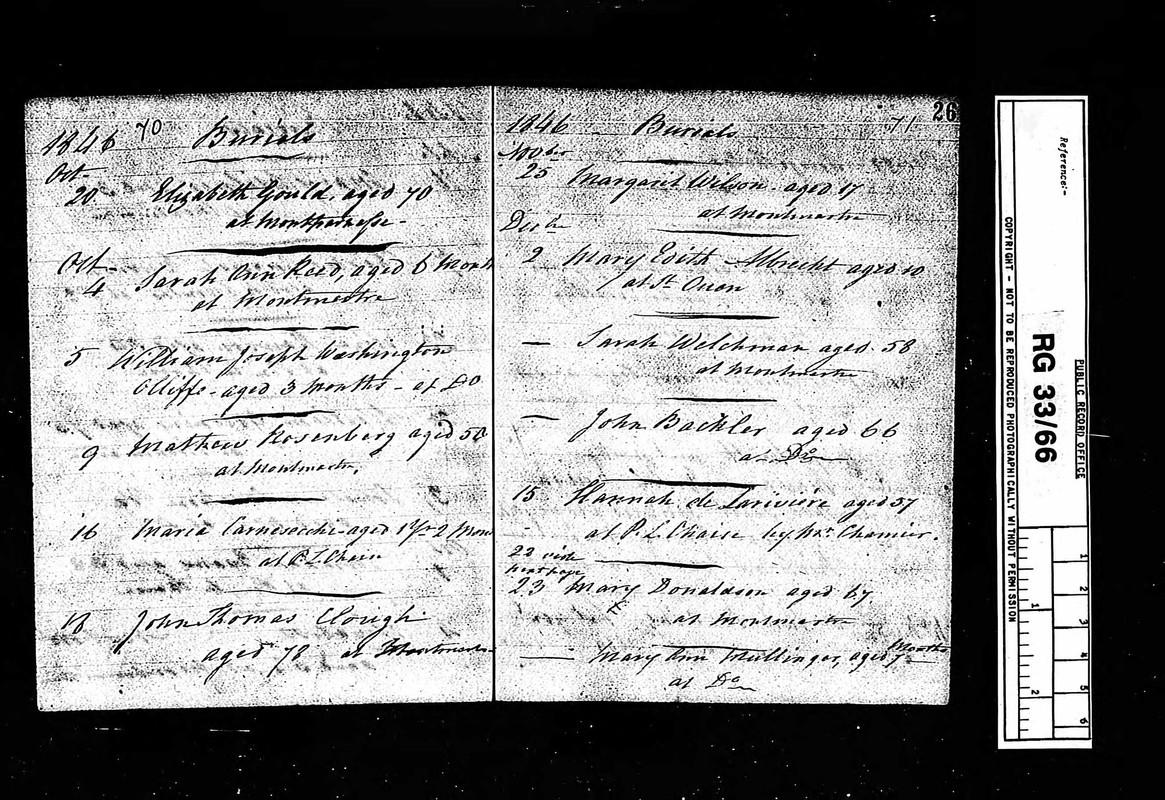 1846 70 Burials
Oct.
20 Elizabeth Gould, aged 70
at Montparnasse -
Oct
4 Sarah Ann Reed, aged 6 Month
at Montmartre
5 William Joseph Washington
Olliffe - aged 3 months - at Do
9 Mathew Rosenberg aged 50
at Montmartre,
16 Maria Carnesecchi aged 1 Yr 2 Mon
at P. L. Chaise
18 John Thomas Clough
aged 72 at Montmartre
1846 - Burials 71 26
Novber
25 Margaret Wilson - aged 17
at Montmartre
Decbr
2 Mary Edith Albrecht aged 10
at St Ouen
— Sarah Welchman aged 58
at Montmartre
— John Backler aged 66
at Do
15 Hannah de Larivière aged 57
at P. L. Chaise by Mr. Chamier.
22 vide
next page
23 Mary Donaldson aged 67
at Montmartre
— Mary Ann Mullinger, aged 7 Months
at Do
Reference:-
COPYRIGHT - NOT TO BE REPRODUCED PHOTOGRAPHICALLY WITHOUT PERMISSION
RG 33/66
PUBLIC RECORD OFFICE
1 2 3 4 5 6
1 2